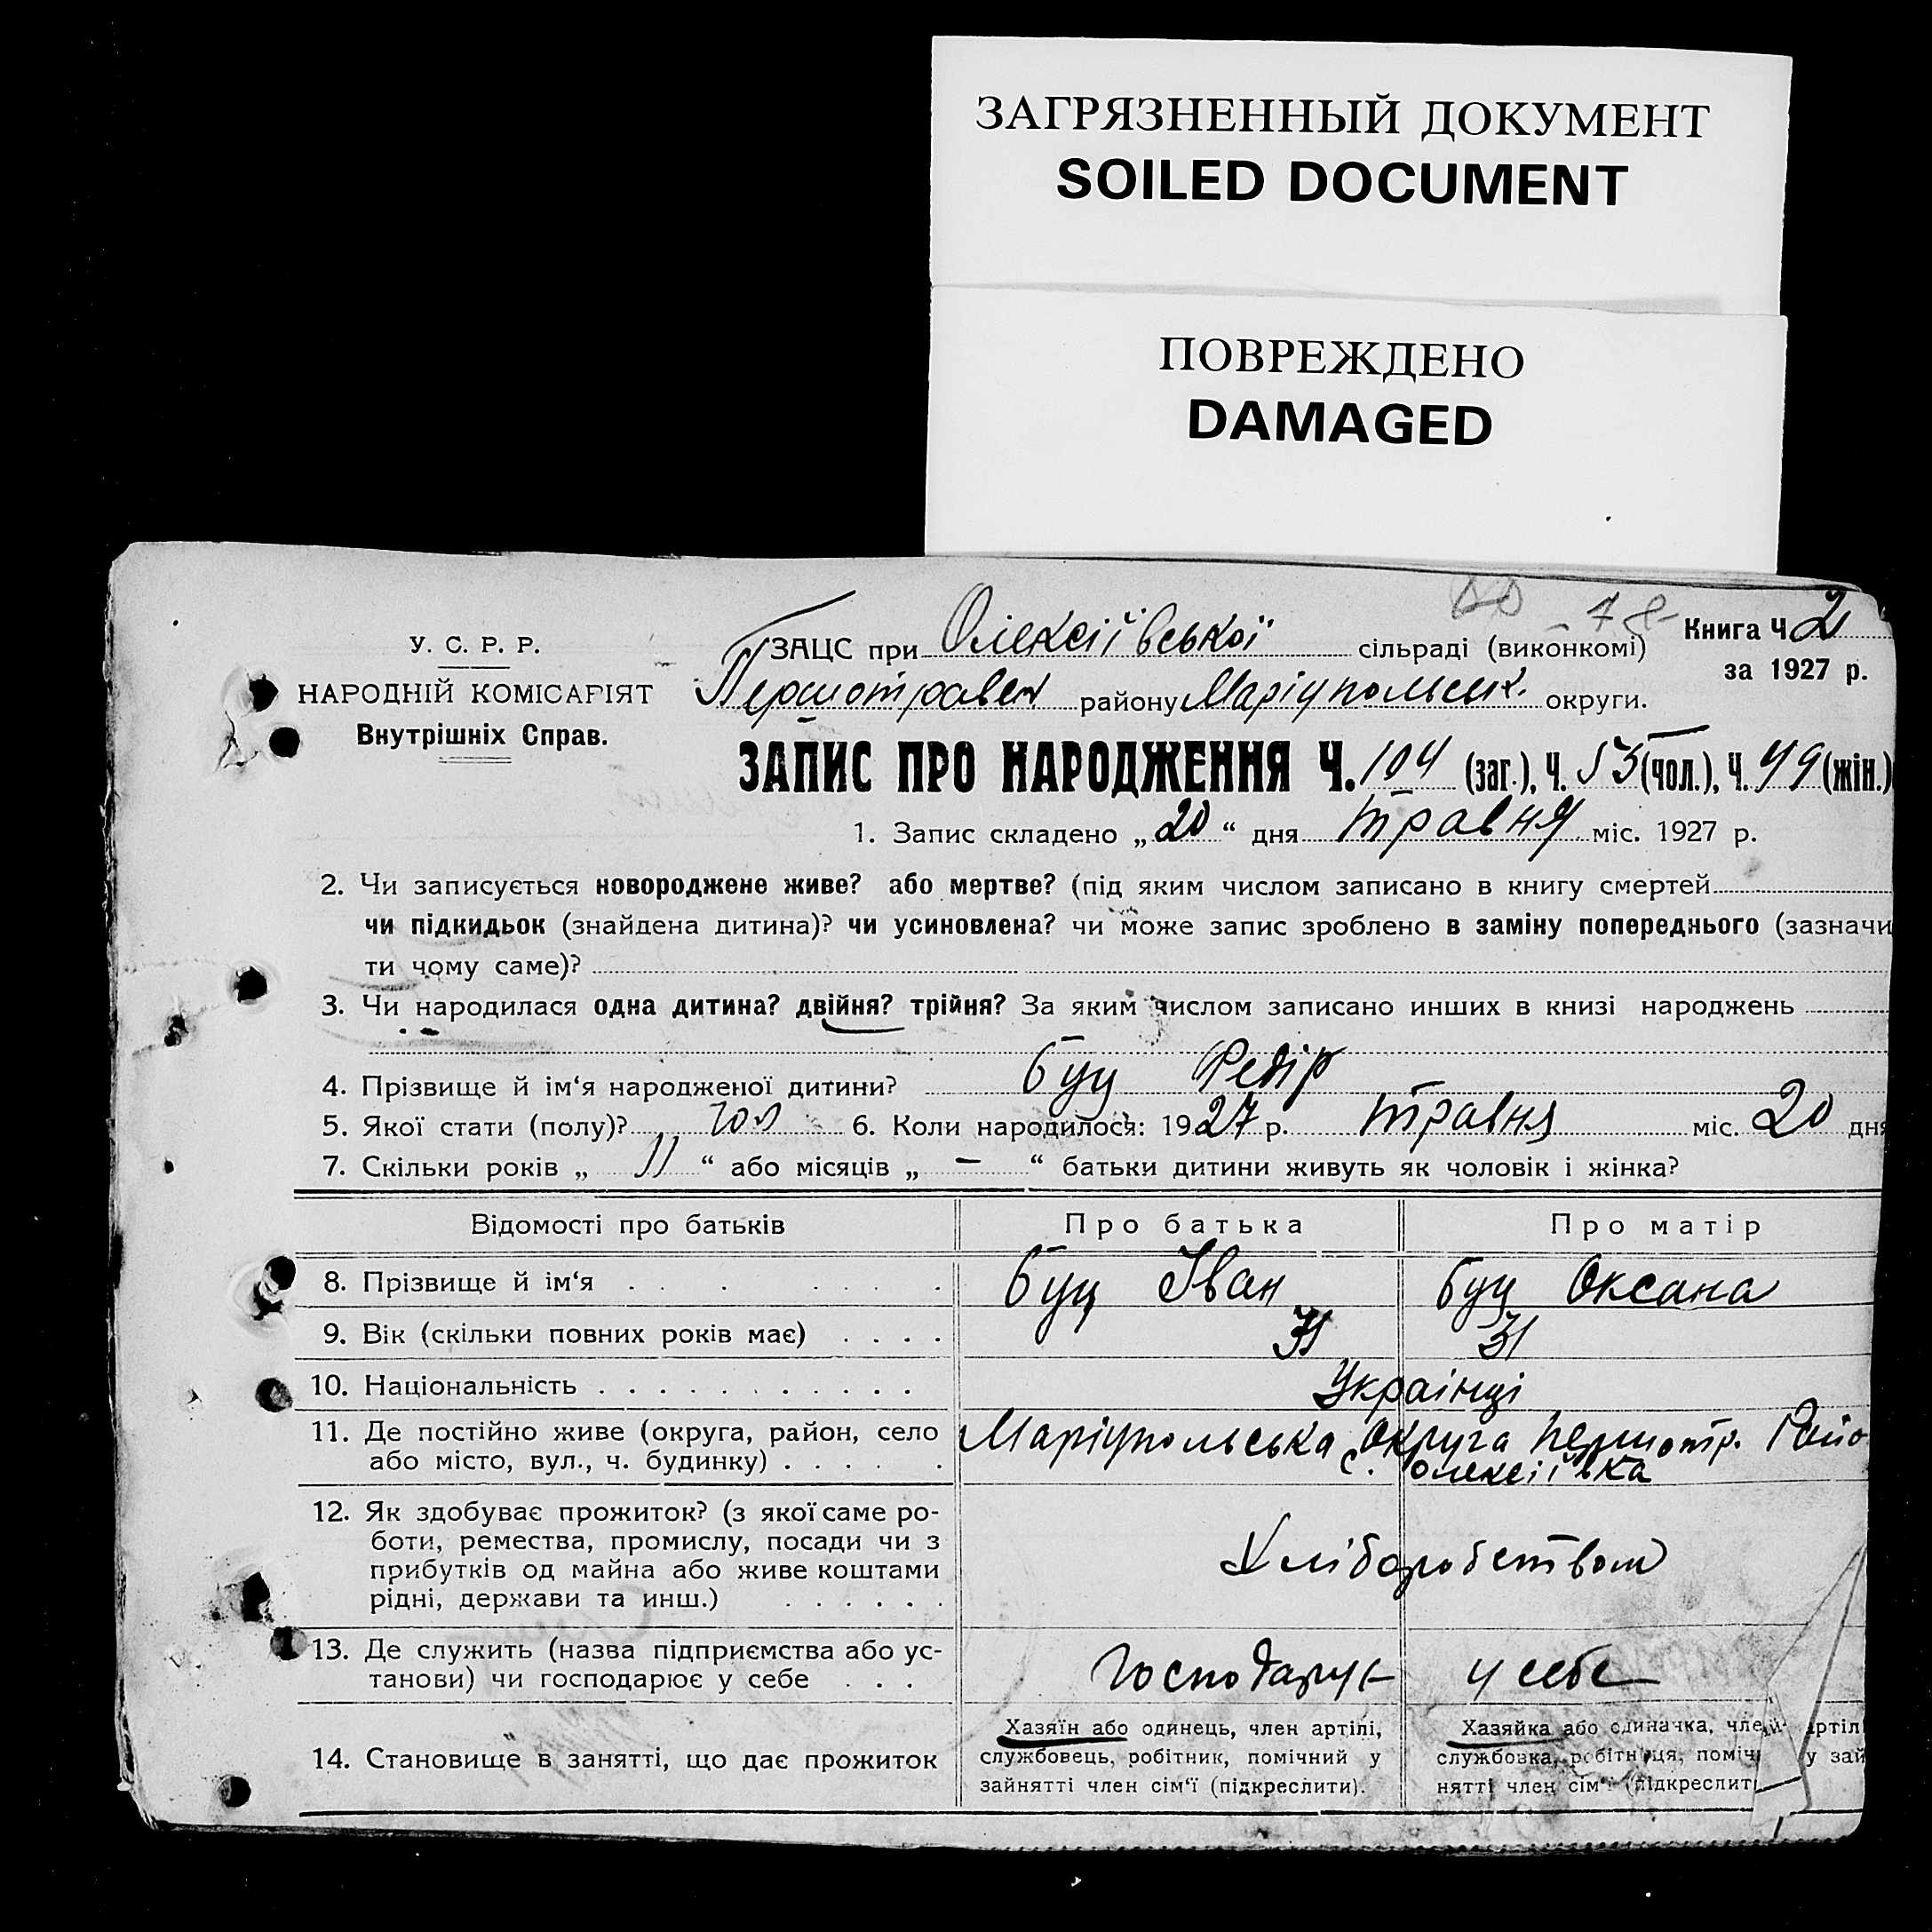 ЗАГРЯЗНЕННЫЙ ДОКУМЕНТ
SOILED DOCUMENT
ПОВРЕЖДЕНО
DAMAGED
У. С. Р. Р.
НАРОДНІЙ КОМІСАРІЯТ
Внутрішніх Справ.
ЗАЦС при Олексіївської сільраді (виконкомі)
Першотравен району Маріупольськ. округи.
Книга Ч. 2
за 1927 р.
ЗАПИС ПРО НАРОДЖЕННЯ Ч. 104 (заг.), Ч. 55 (чол.), Ч. 49 (жін.)
1. Запис складено „20“ дня травня міс. 1927 р.
2. Чи записується новороджене живе? або мертве? (під яким числом записано в книгу смертей
чи підкидьок (знайдена дитина)? чи усиновлена? чи може запис зроблено в заміну попереднього (зазначи
ти чому саме)?
3. Чи народилася одна дитина? двійня? трійня? За яким числом записано инших в книзі народжень
4. Прізвище й ім‘я народженої дитини? Буц Федір
5. Якої стати (полу)? чол 6. Коли народилося: 1927 р. травня міс. 20 дня
7. Скільки років „11“ або місяців „–“ батьки дитини живуть як чоловік і жінка?
Відомості про батьків Про батька Про матір
8. Прізвище й ім‘я Буц Іван Буц Оксана
9. Вік (скільки повних років має) 31
10. Національність Українці
11. Де постійно живе (округа, район, село Маріупольська округа Першотр. Райо
або місто, вул., ч. будинку) с. Олексіївка
12. Як здобуває прожиток? (з якої саме ро-
боти, ремества, промислу, посади чи з
прибутків од майна або живе коштами
рідні, держави та инш.) Хліборобством
13. Де служить (назва підприємства або ус-
танови) чи господарює у себе Господарує у себе
14. Становище в занятті, що дає прожиток
Хазяїн або одинець, член артілі,
службовець, робітник, помічний у
зайнятті член сім‘ї (підкреслити).
Хазяйка або одиначка, член артіл
службовка, робітниця, поміч у зай
нятті член сім‘ї (підкреслит